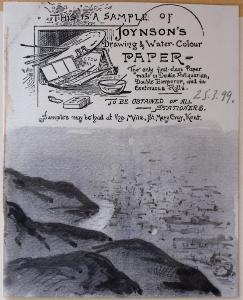 THIS IS A SAMPLE OF
JOYNSON'S
Drawing & Water-Colour
PAPER
The only first-class Paper
made in Double Antiquarian,
Double Emperor, and in
Continuous Rolls.
TO BE OBTAINED OF ALL
STATIONERS.
25.3.99.
Samples may be had at the Mills, St. Mary Cray, Kent.